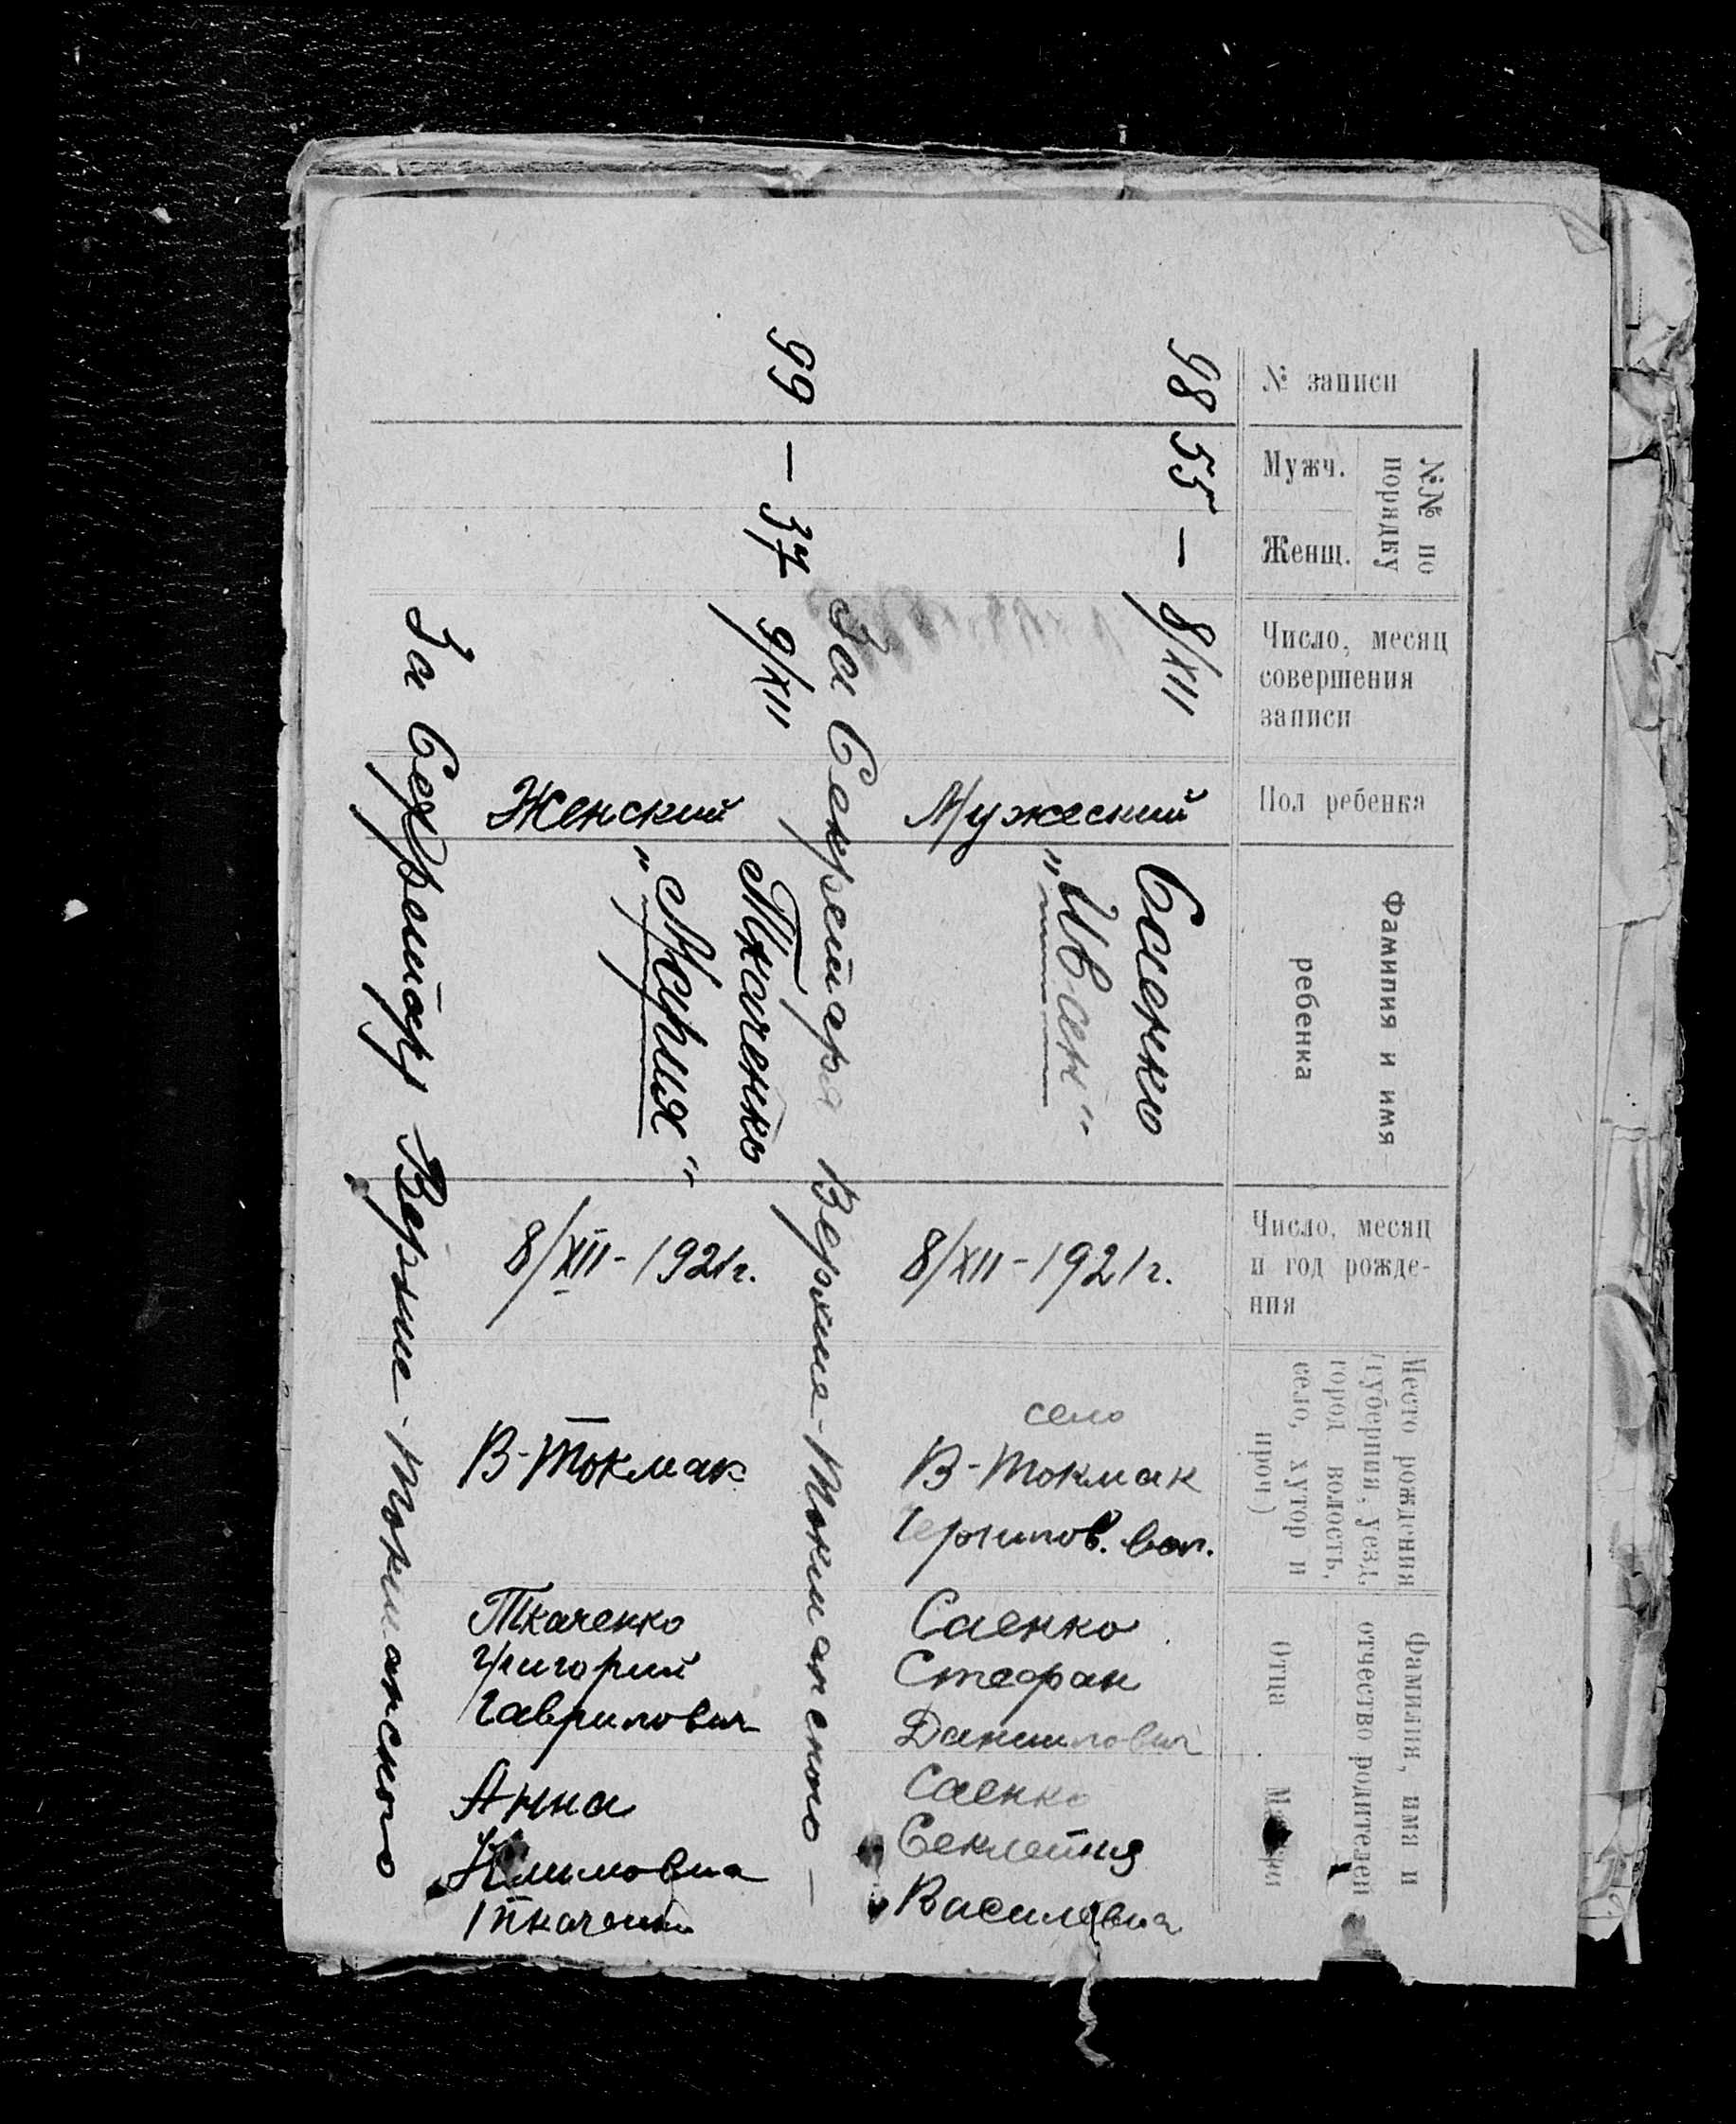 № записи
№№ по
порядку
Мужч.
Женщ.
Число, месяц
совершения
записи
Пол ребенка
Фамилия и имя
ребенка
Число, месяц
и год рожде-
ния
Место рождения
(губерния, уезд,
город волость,
село, хутор и
проч)
Фамилия, имя и
отчество родителей
Отца
Матери
98
55
—
8/XII
Мужеский
Саенко
„Иван“
8/XII-1921г.
село
В-Токмак
вол.
Саенко
Стефан
Даниилович
Саенко
Секлетия
Василевна
За Секретаря Верхне-Токмакского —
99
—
37
9/XII
Женский
Ткаченко
„Мария“
8/XII-1921г.
В-Токмак
Ткаченко
Григорий
Гаврилович
Анна
Климовна
Ткаченко
За Секретару Верхне-Токмакского